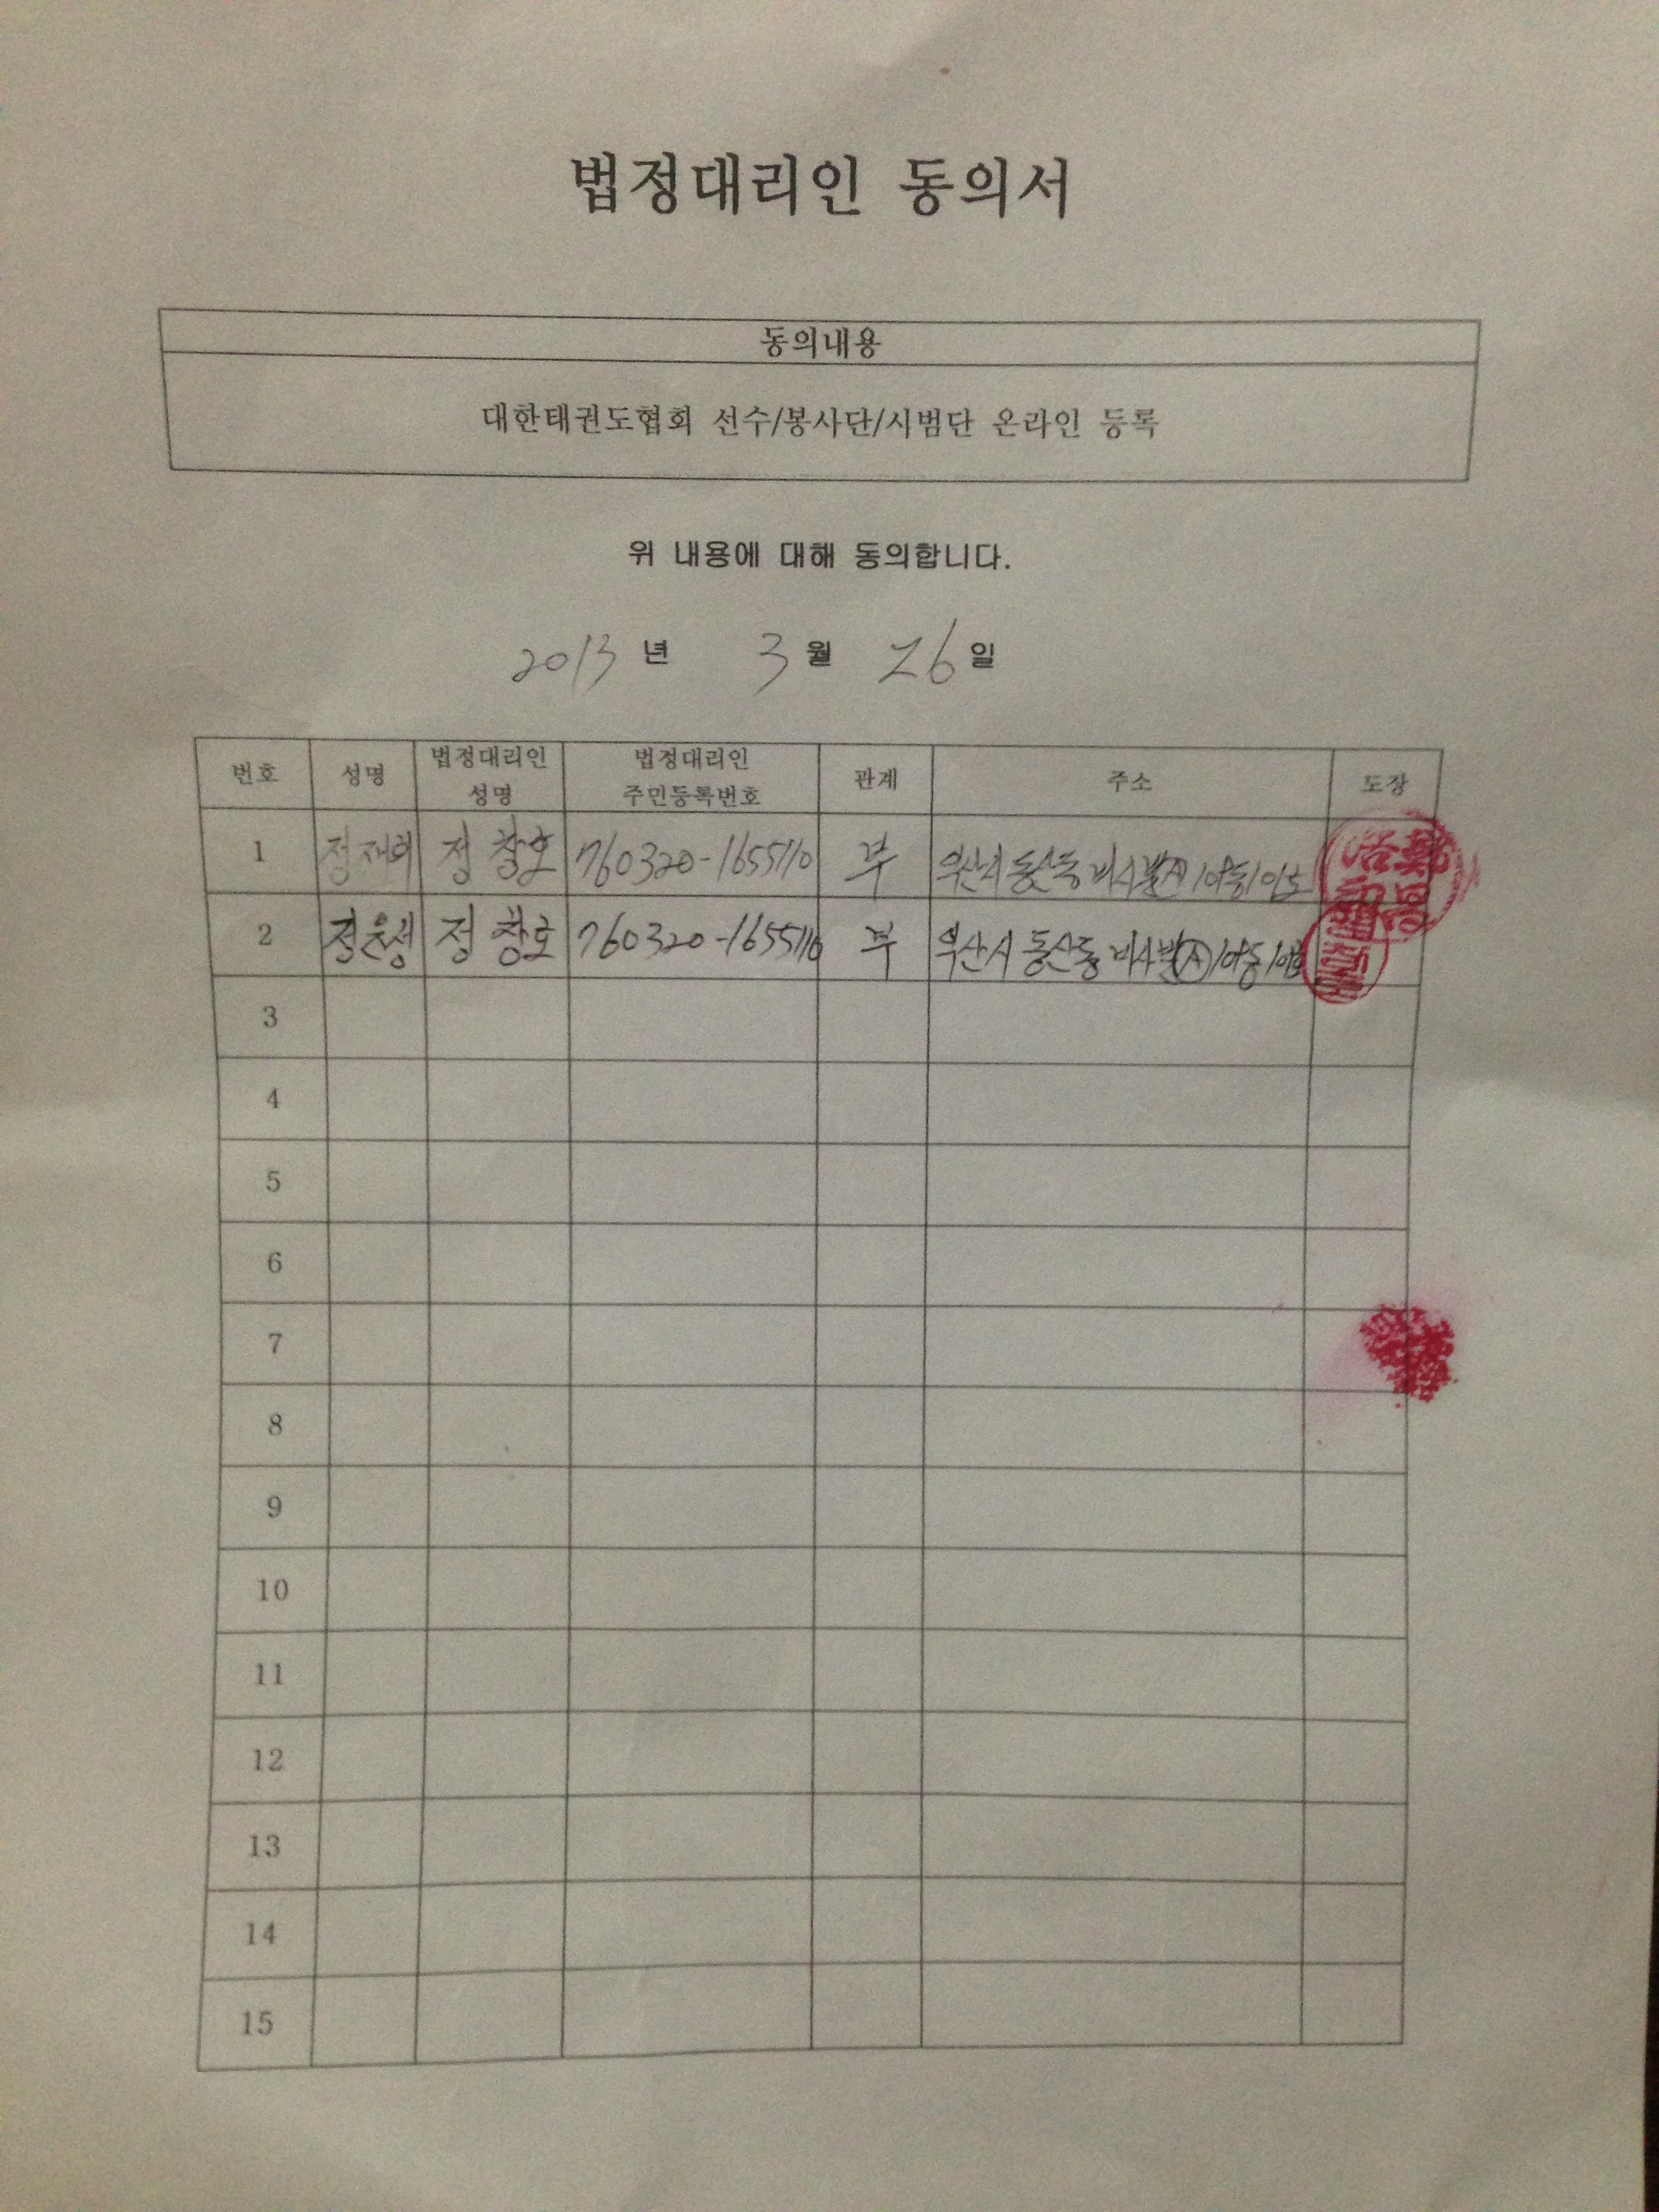 법정대리인 동의서
동의내용
대한태권도협회 선수/봉사단/시범단 온라인 등록
위 내용에 대해 동의합니다.
2013 년 3 월 26 일
번호 성명 법정대리인 성명 법정대리인 주민등록번호 관계 주소 도장
1 정재희 정창호 760320-1655110 부
2 정은생 정창호 760320-1655110 부
3
4
5
6
7
8
9
10
11
12
13
14
15